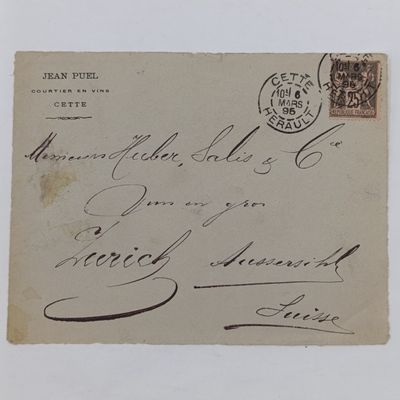 JEAN PUEL
COURTIER EN VINS
CETTE
CETTE
10E 6
MARS
96
HÉRAULT
CETTE
6
MARS
96
HÉRAULT
25
RÉPUBLIQUE FRANÇAISE
Messieurs Huber, Salis & Cie
Vins en gros
Zurich Aussersihl
Suisse